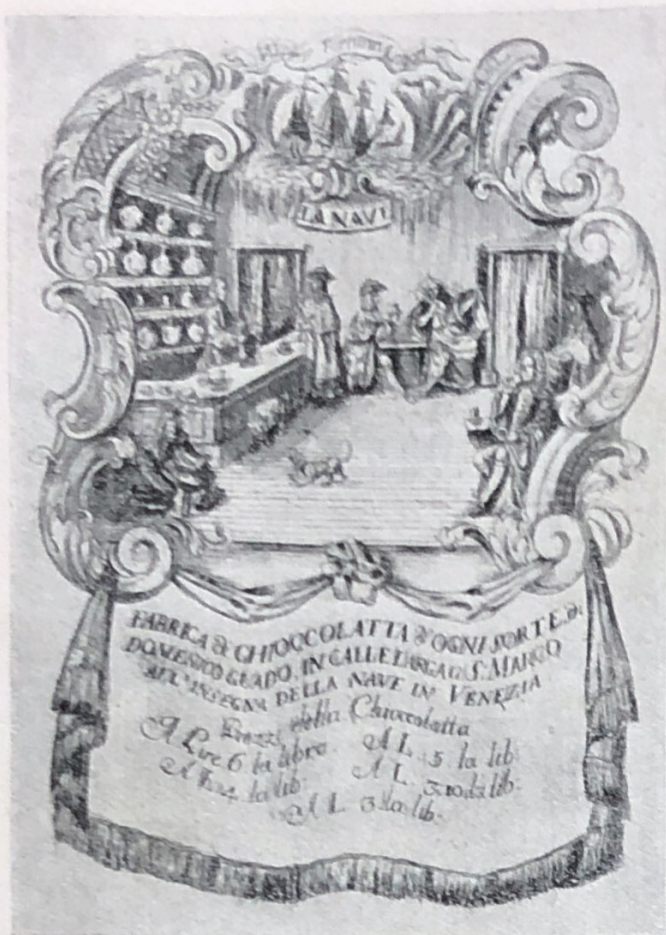 LA NAVE
FABRICA di CHIOCCOLATTA d'OGNI SORTE, di
DOMENICO GUADO, IN CALLE LARGA di S. MARCO
ALL'INSEGNA DELLA NAVE IN VENEZIA
Prezzi della Chioccolatta
A Lire 6 la libra. A L. 5. la lib:
A L. 4. la lib. A L. 3.10. la lib.
A L. 3. la lib.